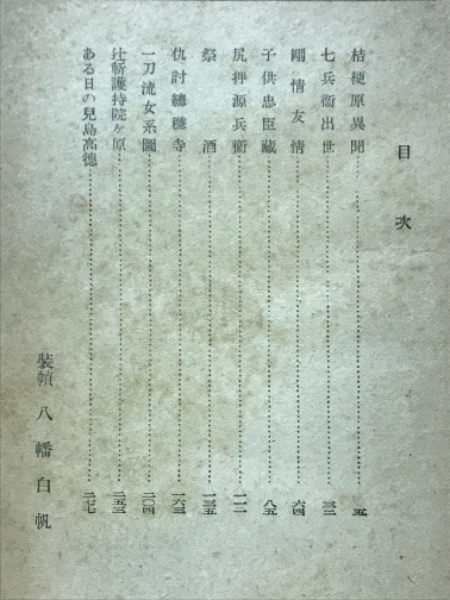 目次
桔梗原異聞…………五
七兵衞出世…………三二
剛情友情…………六四
子供忠臣藏…………八五
尻押源兵衞…………一一一
祭酒…………一三五
仇討總穩寺…………一六三
一刀流女系圖…………二〇四
辻斬護持院ヶ原…………二五三
ある日の兒島高德…………二七七
裝幀 八幡白帆